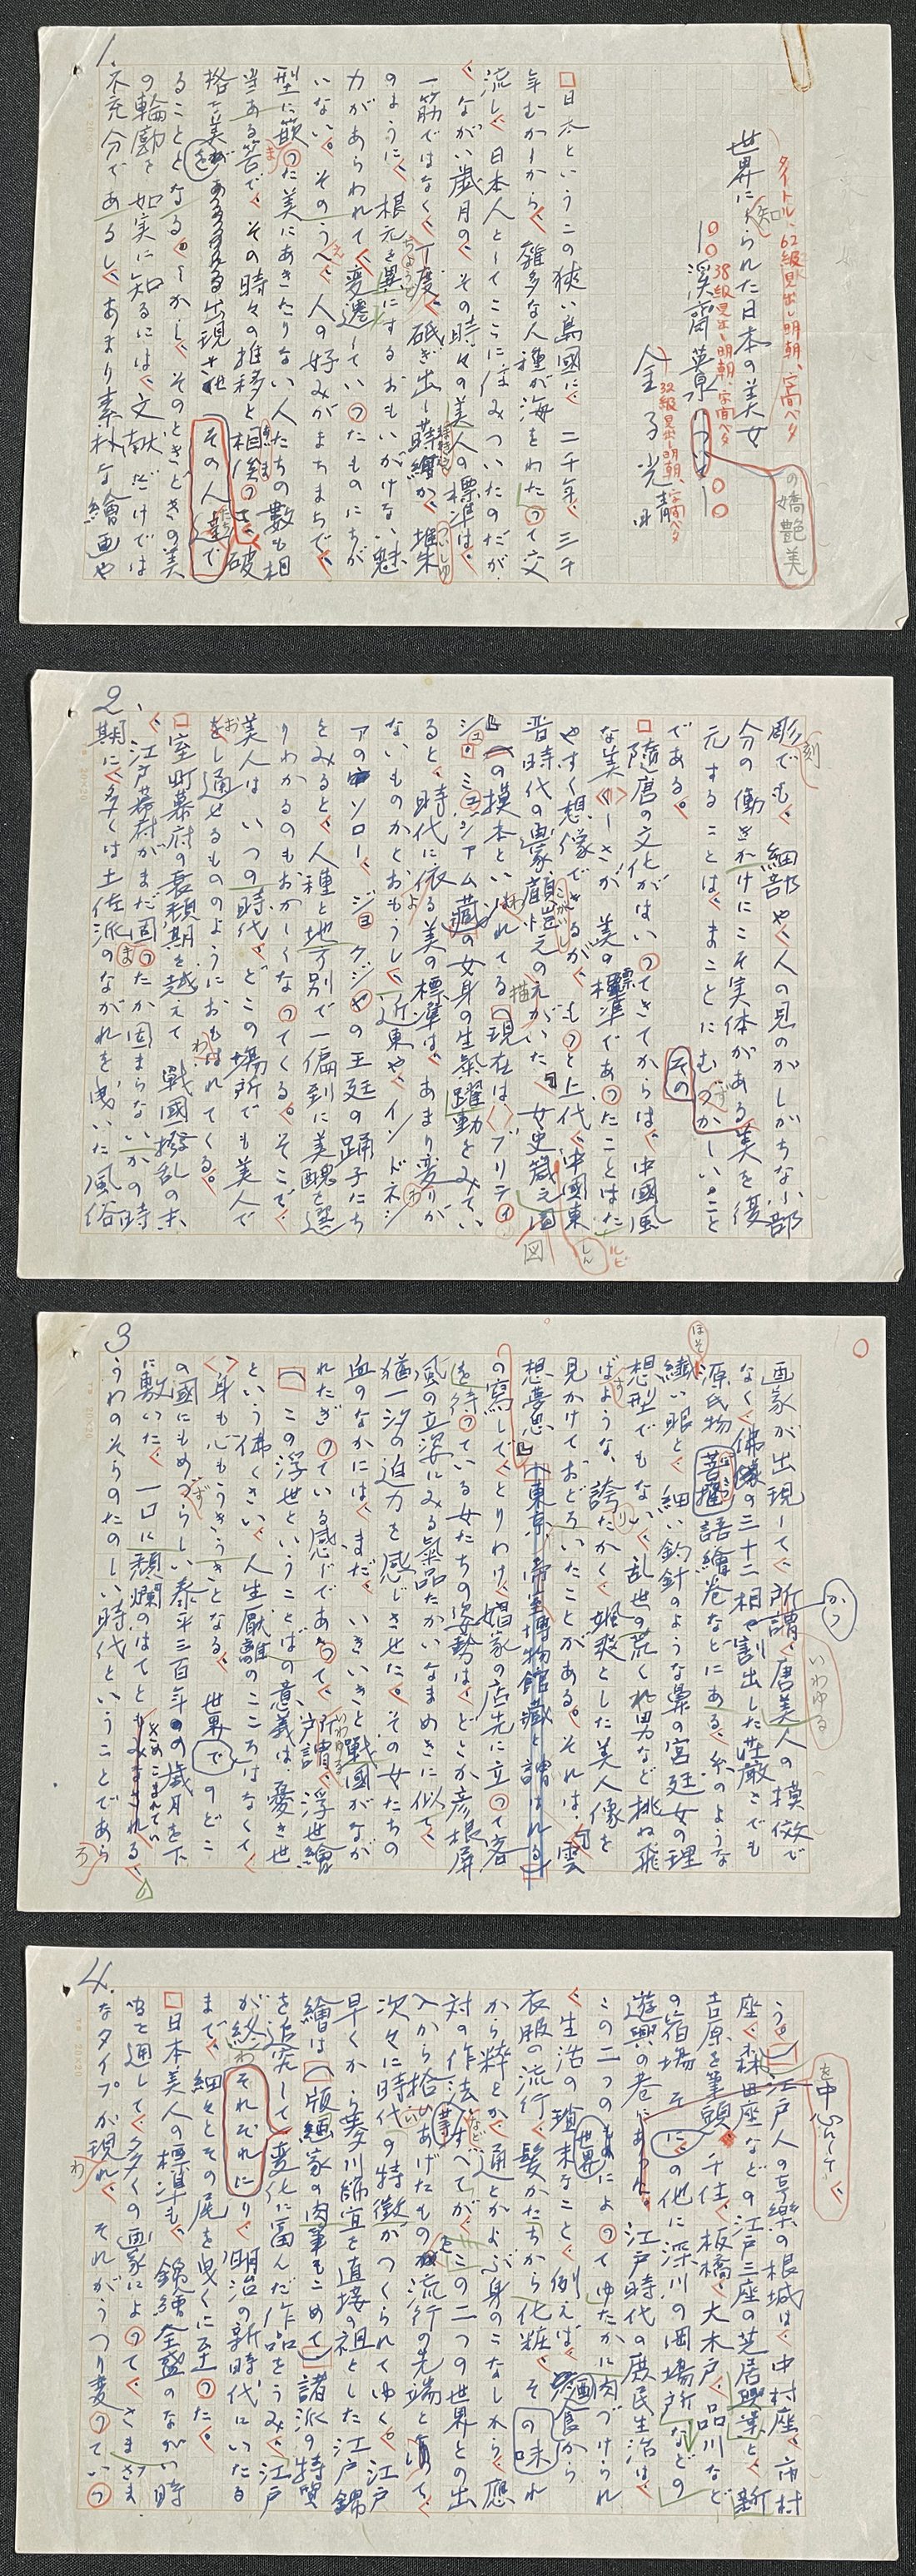 1.
タイトル、62級見出し明朝、字面ベタ
世界に知られた日本の美女
の嬌艶美
38級見出し明朝、字面ベタ
溪齋英泉
32級見出し明朝、字面ベタ
金子光晴
日本というこの狭い島國に、二千年、三千
年むかしから、雑多な人種が海をわたって文
流し、日本人としてここに住みついたのだが、
ながい歳月の、その時々の美人の標準は、
一筋ではなく、丁度、砥ぎ出し蒔繪か、堆朱
のように、根元を異にするおもいがけない魅
力があらわれて、変遷していったものにちが
いない。そのうへ、人の好みがまちまちで、
型に嵌った美にあきたりない人たちの數も相
当ある筈で、その時々の推移と相俟って、破
格な美を出現させ
その人達で
ることとなる。しかし、そのときどきの美
の輪廓を如実に知るには、文献だけでは
不充分であるし、あまり素朴な繪画や
2.
彫刻でも、細部や、人の見のがしがちな小部
分の働きかけにこそ実体がある美を復
元することは、まことにむづかしいこと
である。
隨唐の文化がはいってきてからは、中國風
な美しさが美の標準であったことはた
やすく想像できるが、もっと上代、中國東
晋時代の画家顧愷之の描いた「女史箴図
」の摸本といわれてる（現在は、ブリティ
シュ・ミュジアム藏）の女身の生氣躍動をみてい
ると、時代に依る美の標準は、あまり変りが
ないものかとおもうし、近東や、インドネシ
アのソロー、ジョクジャの王廷の踊子たち
をみると、人種と地方別で一偏到に美醜を選
りわかるのもおかしくなってくる。そこで、
美人は、いつの時代、どこの場所でも美人で
をし通せるもののようにおもわれてくる。
室町幕府の衰頽期を越えて、戰國撥乱の末
、江戸幕府がまだ固まったか固まらないかの時
期に、多くは土佐派のながれを曳いた風俗
3
画家が出現して、所謂、唐美人の摸倣で
いわゆる
かつ
なく、佛像の三十二相や割出した荘厳でも
源氏物語繪卷などにある、糸のような
ほそ
繊い眼と、細い釣針のような鼻の宮廷女の理
想型でもない、乱世の荒くれ男など挑ね飛
ばすような、誇りたかく、颯爽とした美人像を
見かけておどろいたことがある。それは、「雲
想夢思」（東京、帝室博物館藏と謂はれる）
の寫しで、とりわけ、娼家の店先に立って客
を待っている女たちの姿勢は、どこか彦根屏
風の立姿にみる氣品たかいなまめきに似て、
猶一汐の迫力を感じさせた。その女たちの
血のなかには、まだ、いきいきと戰國がなが
れたぎっている感じであって、所謂、浮世繪
（この浮世ということばの意義は、憂き世
という佛くさい、人生厭離のこころはなくて、
身も心もうきうきとなる、世界でのどこ
の國にもめずらしい泰平三百年の歳月を下
に敷いた、一口に頽爛のはてとも
うわのそらのたのしい時代ということであろ
4.
う。）江戸人の享樂の根城は、中村座、市村
を中心として、
座、森田座などの江戸三座の芝居興業と、新
吉原を筆頭、千住、板橋、大木戸、品川など
の宿場、その他に深川の岡場所などの
遊興の巷にあった。江戸時代の庶民生活は、
この二つの世界によってゆたかに肉づけられ
、生活の瑣末なこと、例えば、食から
衣服の流行、髪かたちから化粧、その味
から粋とか、通とかよぶ身のこなしから、應
対の作法等すべてが、この二つの世界との出
入から拾いあげたもの、流行の先端として、
次々に時代の特徴がつくられてゆく。江戸
早くから菱川師宣を直接の祖とした江戸錦
繪は（版画家の肉筆もこめて）諸派の特質
を追究して、変化に富んだ作品をうみ、江戸
が終りそれぞれに、明治の新時代にいたる
まで、細々とその尾を曳くに至った。
日本美人の標準も、錦繪全盛のながい時
を通して、多くの画家によって、さまざま
なタイプが現われ、それがうつり変ってい